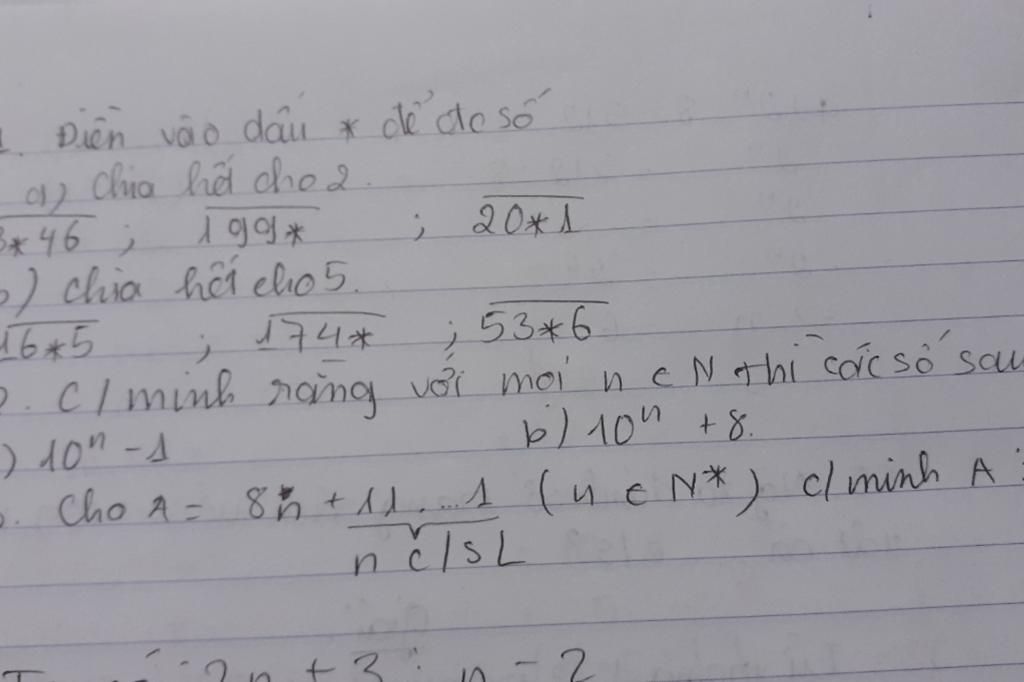 1. Điền vào dấu * để đc số
a) Chia hết cho 2.
3*46 ; 199* ; 20*1
b) chia hết cho 5.
16*5 ; 174* ; 53*6
2. C/minh rằng với mọi n ∈ N thì các số sau
a) 10ⁿ - 1 b) 10ⁿ + 8.
3. Cho A = 8n + 11....1 (n ∈ N*) c/minh A :
n c/s 1
2n + 3 : n - 2